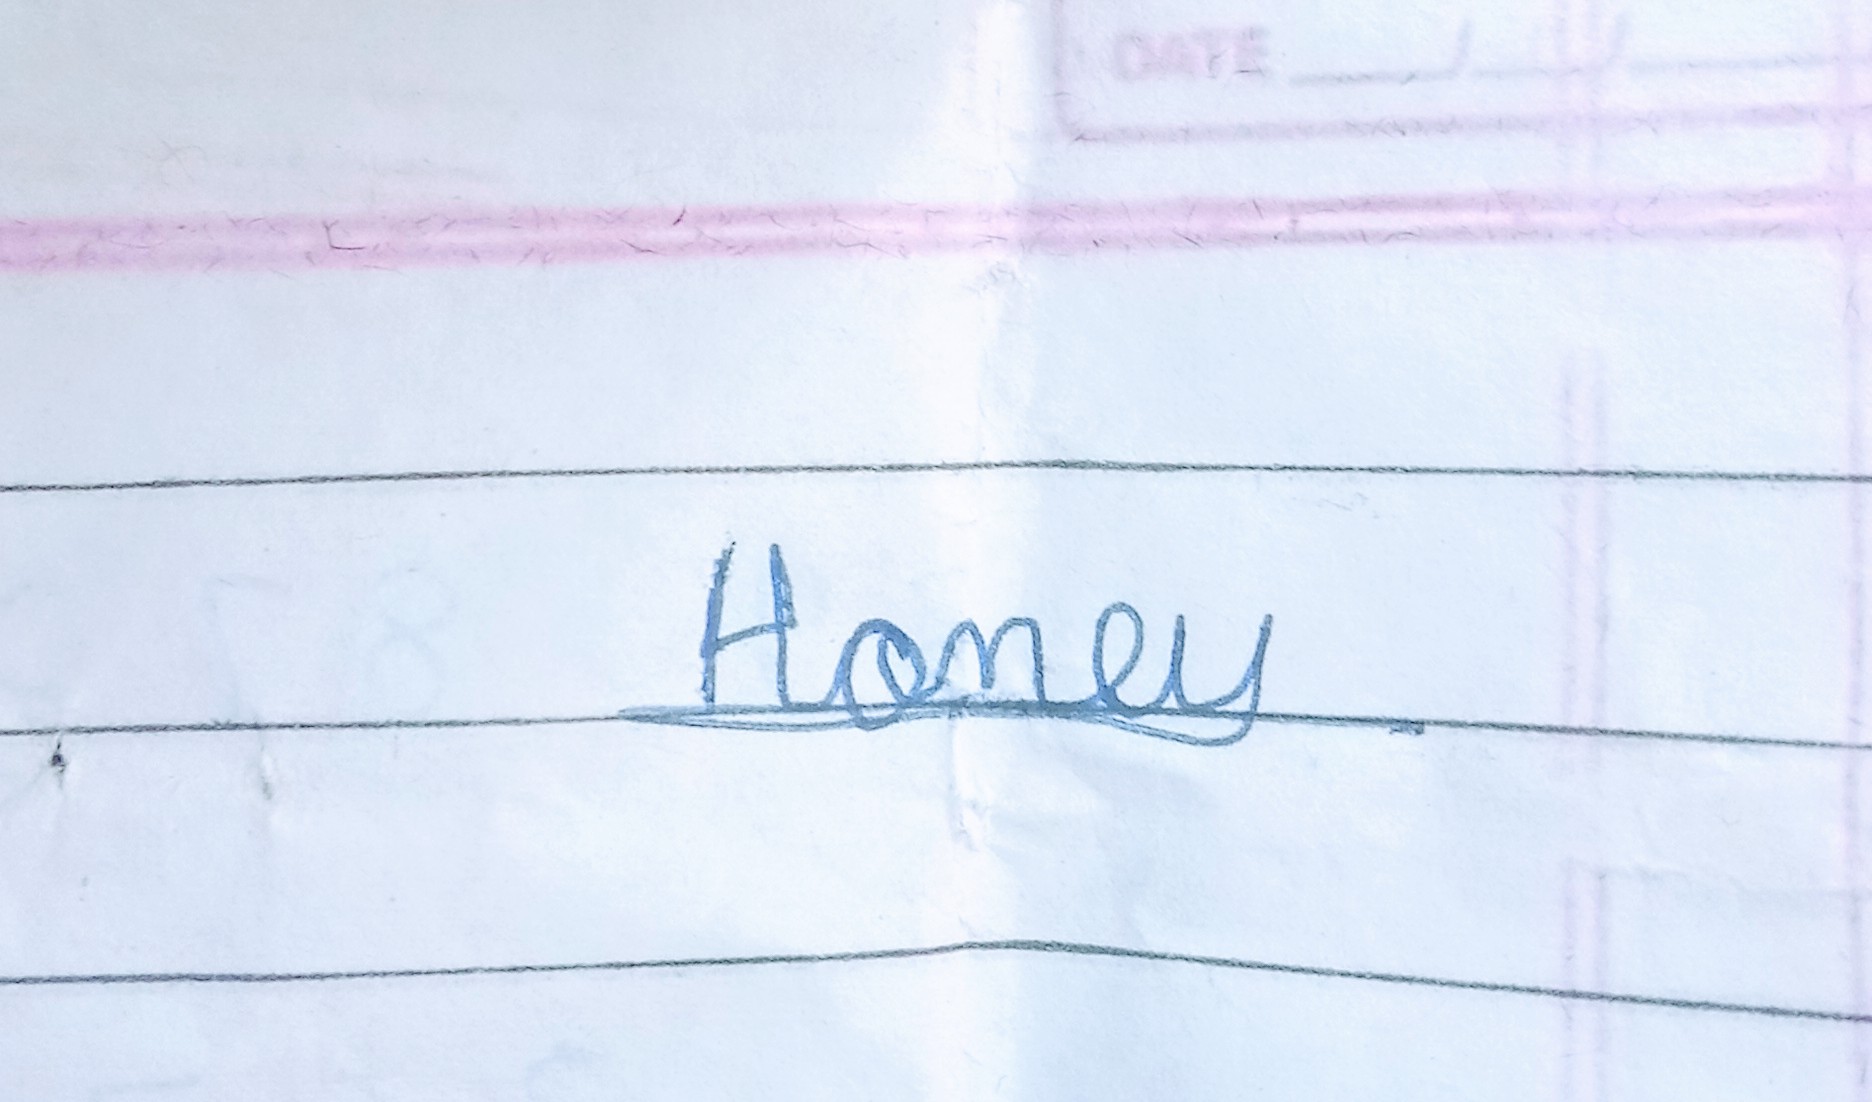 DATE ___/___/___
Honey